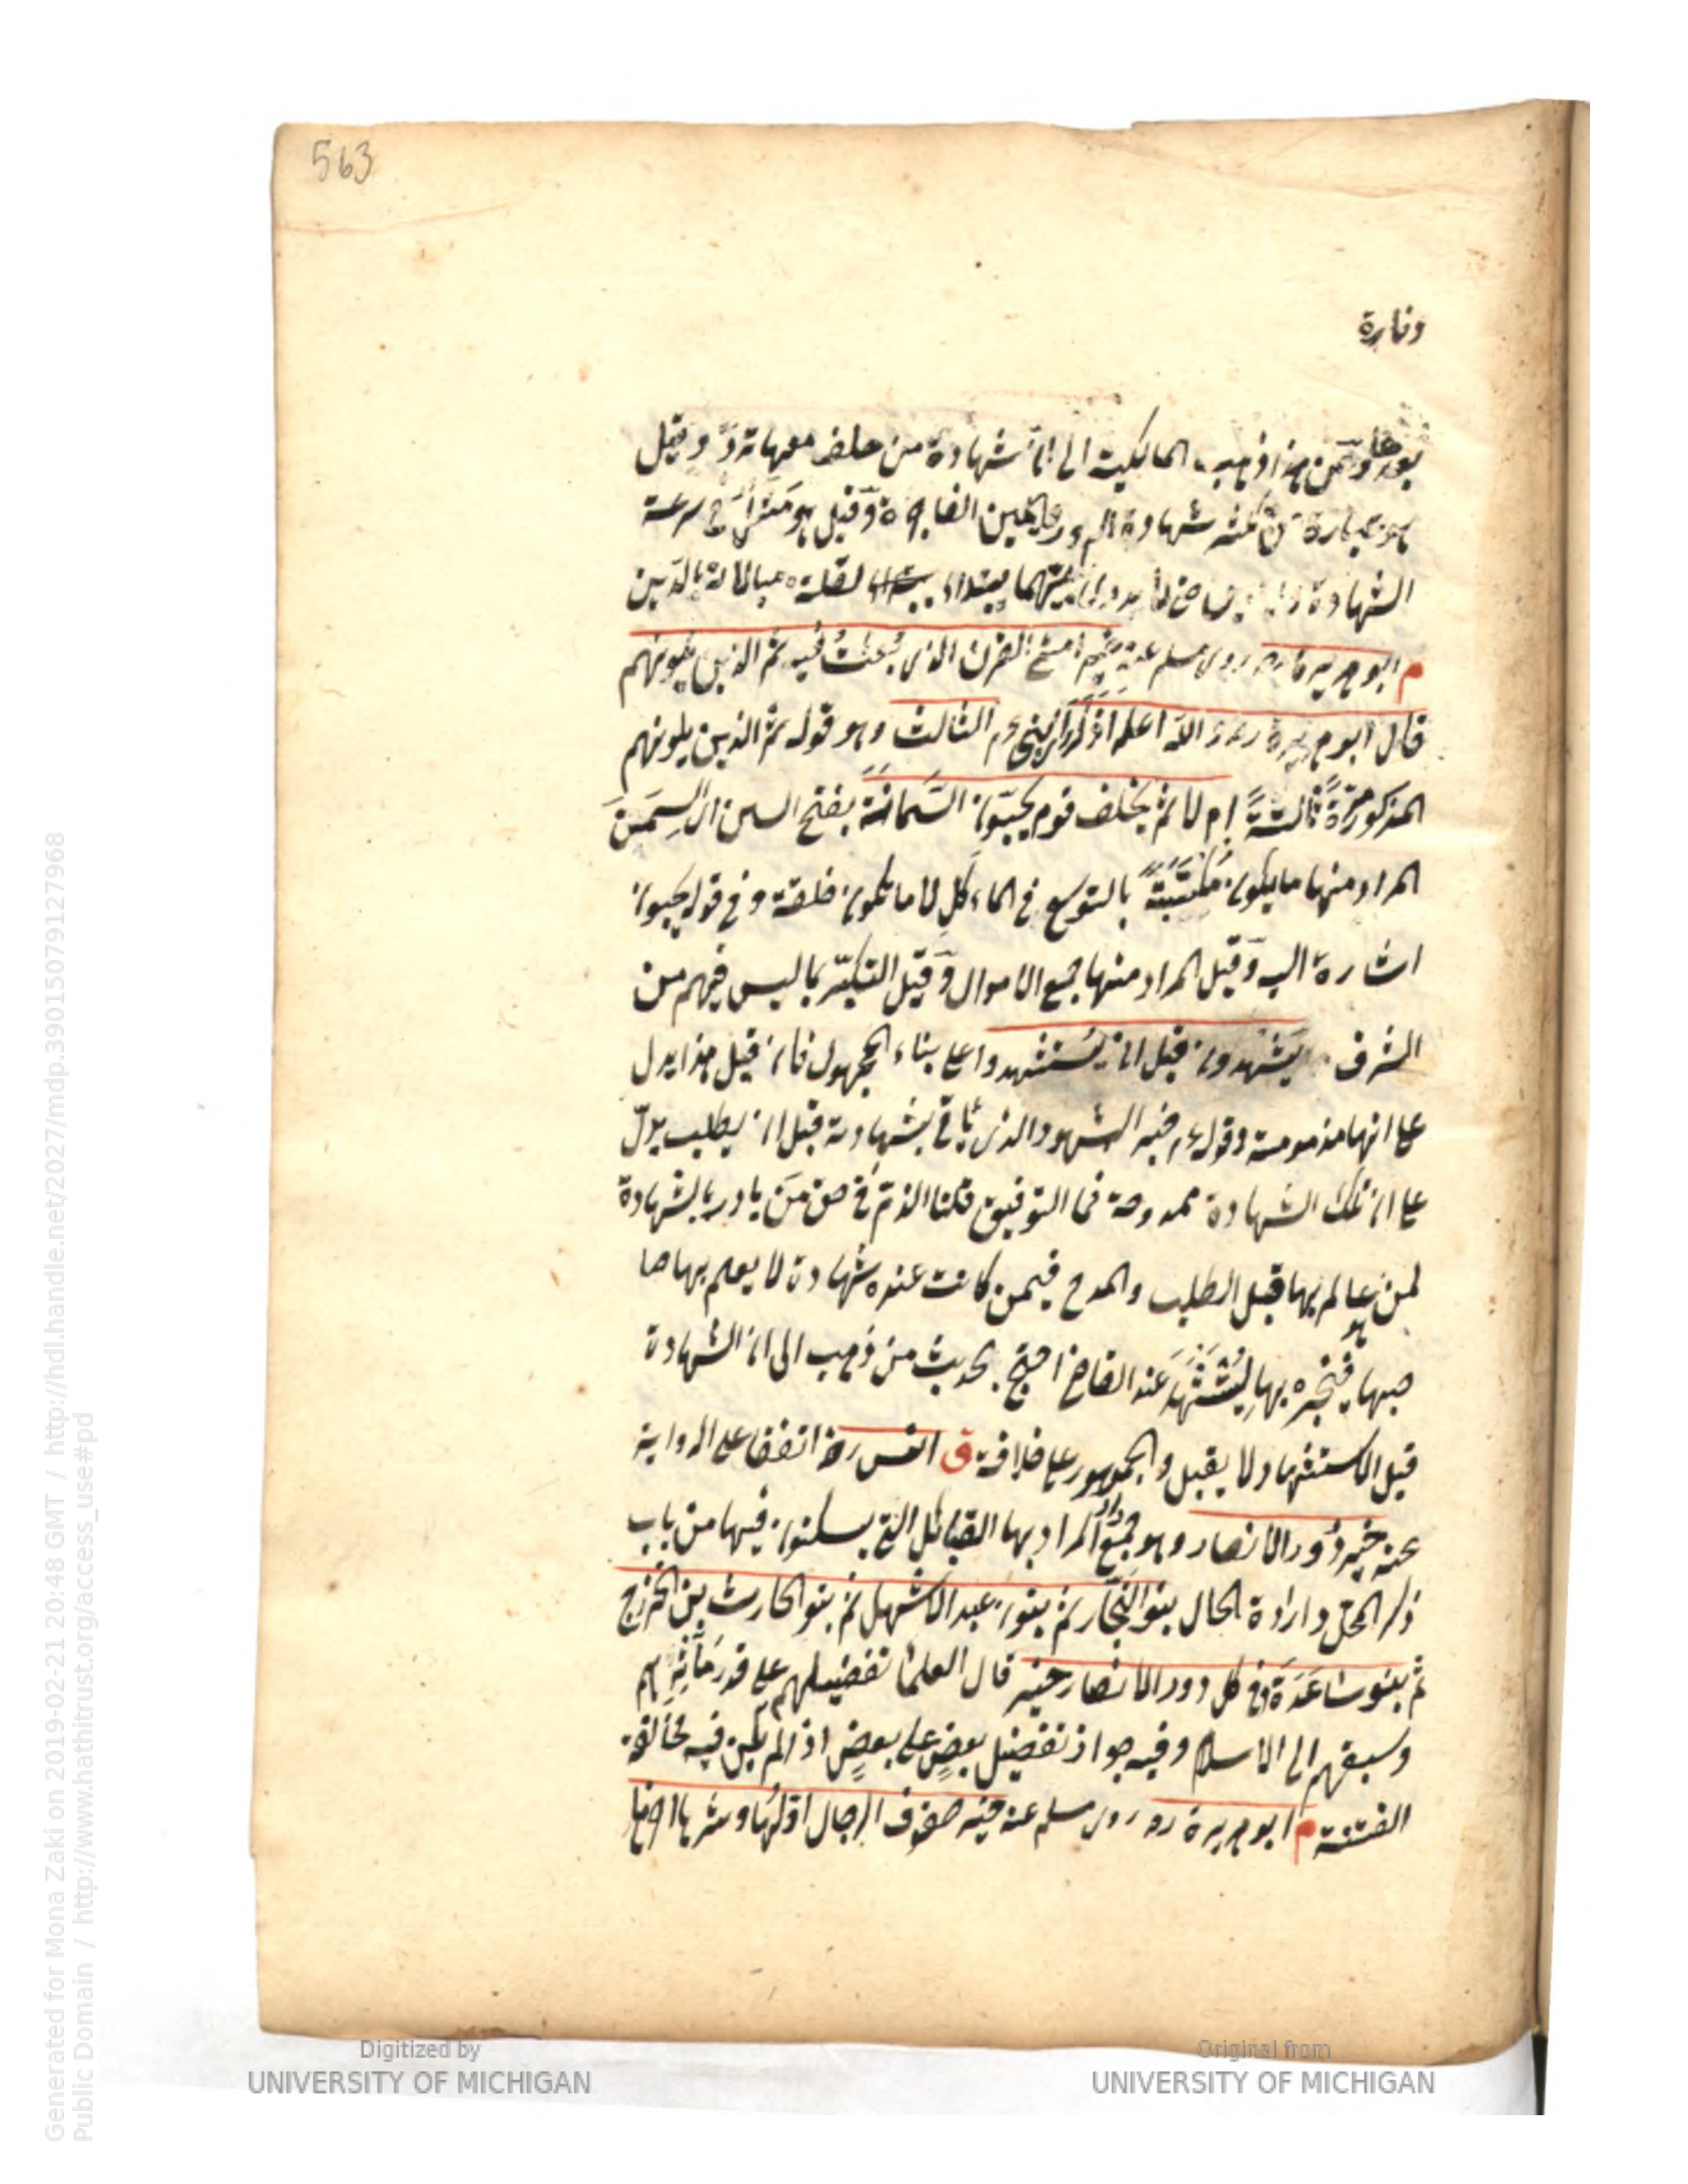 563
وتارة
بعدها ومن هذا ذهب المالكية الى ان شهادة من حلف معها ترد وقيل
هو عبارة عن كثرة شهادة الزور واليمين الفاجرة وقيل هو مثل في سرعة
الشهادة واليمين حتى لا يدرى بايتهما يبتدأ لقلة مبالاته بالدين
م ابو هريرة روى مسلم عنه خير امتي القرن الذي بُعثتُ فيه ثم الذين يلونهم
قال ابو هريرة والله اعلم اذكر الثالث وهو قوله ثم الذين يلونهم
المذكور مرةً ثالثةً ام لا ثم يخلف قوم يحبّون السَّمانَة بفتح السين اي السِمَن
المراد منها ما يكون مكتسَبَةً بالتوسع في المأكل لا ما تكون خلقة وفي قوله يحبون
اشارة اليه وَقيل المراد منها جمع الاموال وَقيل التكبّر بما ليس فيهم من
الشرف يَشهدون قبل ان يُستشهدوا على بناء المجهول فان قيل هذا يدل
على انها مذمومة وقوله خير الشهود الذي يأتي بشهادته قبل ان يطلب يدلّ
على ان تلك الشهادة ممدوحة فما التوفيق قلنا الذم في حق مَن بادر بالشهادة
لمن هو عالم بها قبل الطلب والمدح فيمن كانت عنده شهادة لا يعلم بها صا
حبها فيخبره بها ليُستَشهَد عند القاضي احتج بحديث من ذهب الى ان الشهادة
قبل الاستشهاد لا يقبل والجمهور على خلافه ق انس رضه اتفقا على الرواية
عنه خير دُور الانصار وهو جمع دار المراد بها القبائل التي يسكنون فيها من باب
ذكر المحل وارادة الحال بنو النجّار ثم بنو عبد الاشهل ثم بنو الحارث بن الخزرج
ثم بنو ساعدَة وفي كل دور الانصار خير قال العلماء تفضيلهم على قدر مَآثرِهم
وسبقهم الى الاسلام وفيه جواز تفضيل بعضٍ على بعضٍ اذا لم يكن فيه مخافة
الفتنة م ابو هريرة رضه روى مسلم عنه خير صفوف الرجال اوّلها وشرها اخرها